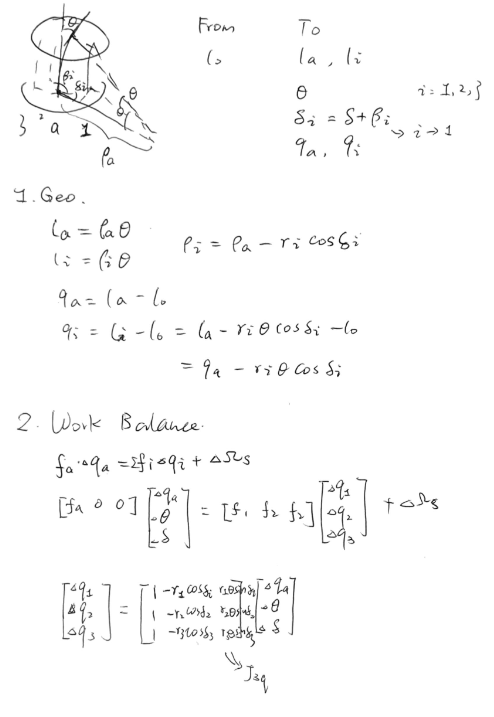 From To
l₀ la , li
θ i = 1, 2, 3
δi = δ + βi → i → 1
qa , qi
θ
βi δi
θ
θ
3 2 a 1
ρa
1. Geo.
la = ρa θ
li = ρi θ
ρi = ρa - ri cosδi
qa = la - l₀
qi = li - l₀ = la - ri θ cosδi - l₀
= qa - ri θ cosδi
2. Work Balance.
fa · Δqa = Σfi Δqi + ΔΩs
[fa 0 0] [Δqa Δθ Δδ] = [f₁ f₂ f₂] [Δq1 Δq2 Δq3] + ΔΩs
[Δq1 Δq2 Δq3] = [1 -r1 cosδi r1θsinδ1
1 -r2 cosδ2 r2θsinδ2
1 -r3cosδ3 r3θsinδ3] [Δqa Δθ Δδ]
J3q